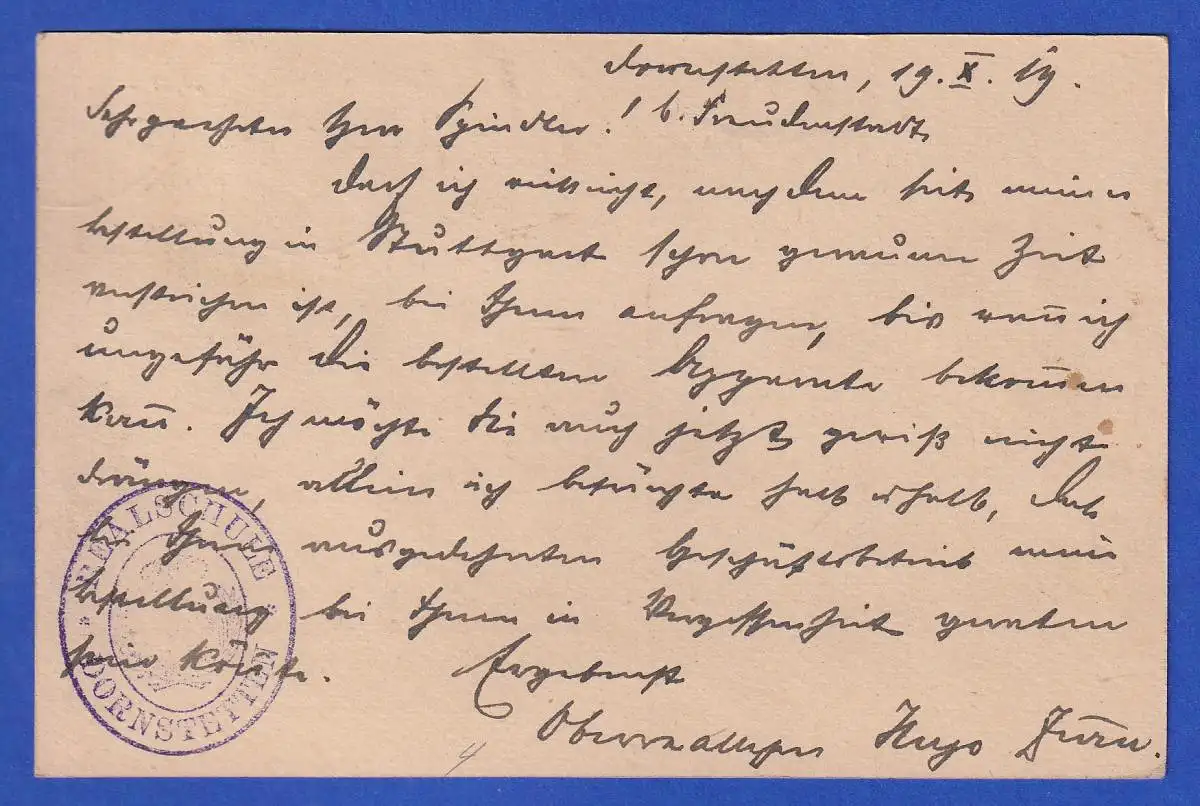 Dornstetten, 19. X. 19.
Sehrgeehrter Herr Spindler! b. Freudenstadt
Darf ich vielleicht, nachdem seit meiner
Bestellung in Stuttgart schon geraume Zeit
verstrichen ist, bei Ihnen anfragen, bis wann ich
ungefähr die bestellten Apparate bekommen
kann. Ich möchte Sie auch jetzt gewiß nicht
drängen, allein ich befürchte halb &, daß
bei Ihrem ausgedehnten Geschäftsbetrieb meine
Bestellung bei Ihnen in Vergessenheit geraten
sein könnte. Ergebenst
Oberreallehrer Hugo
REALSCHULE
DORNSTETTEN